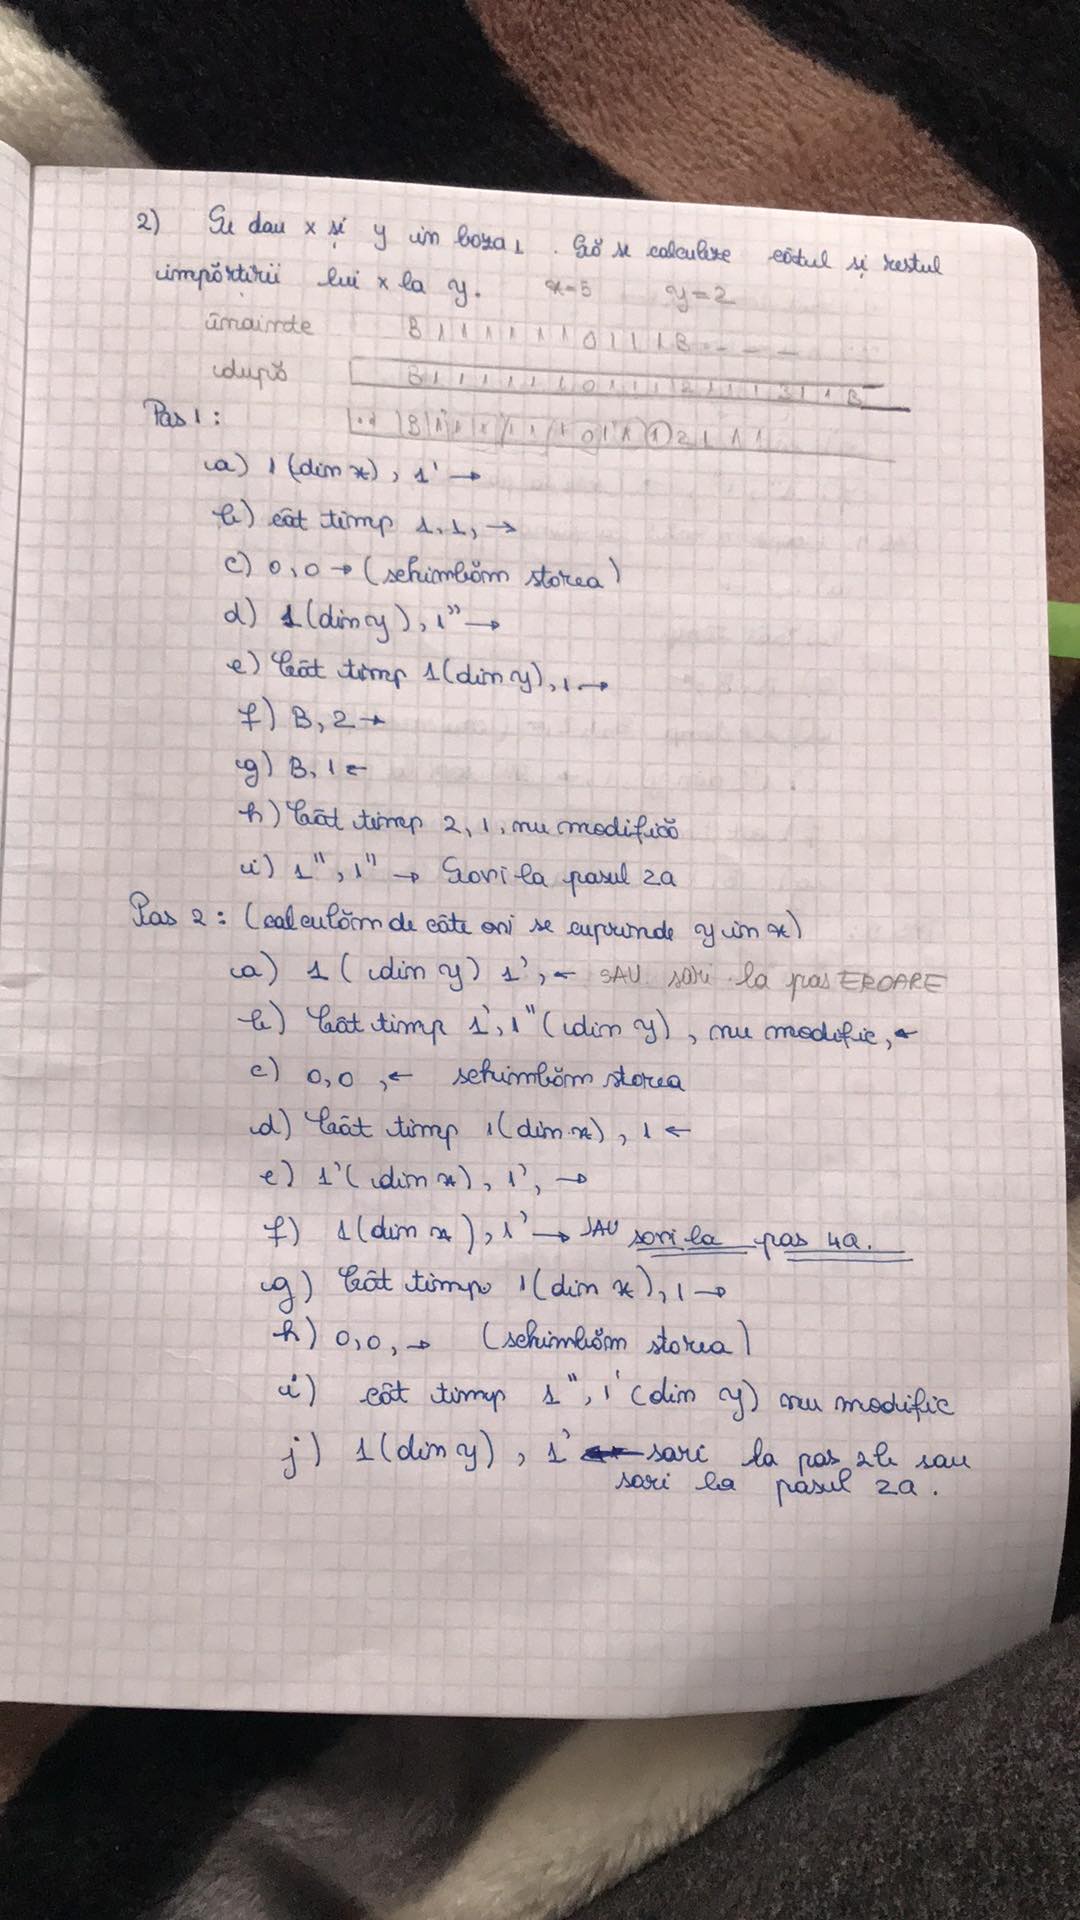 2) Se dau x și y în baza 1. Să se calculeze câtul și restul
împărțirii lui x la y. x=5 y=2
înainte B 1 1 1 1 1 1 0 1 1 1 B - - -
după B 1 1 1 1 1 1 0 1 1 1 2 1 1 1 3 1 1 B
Pas 1:
a) 1 (din x), 1' →
b) cât timp 1, 1, →
c) 0, 0 → (schimbăm starea)
d) 1 (din y), 1'' →
e) Cât timp 1 (din y), 1 →
f) B, 2 →
g) B, 1 ←
h) Cât timp 2, 1, nu modifică
i) 1'', 1'' → Sari la pasul 2a
Pas 2: (calculăm de câte ori se cuprinde y în x)
a) 1 (din y) 1', ← SAU sari la pas EROARE
b) Cât timp 1', 1'' (din y), nu modific, ←
c) 0, 0, ← schimbăm starea
d) Cât timp 1 (din x), 1 ←
e) 1' (din x), 1', →
f) 1 (din x), 1' → SAU sari la pas 4a.
g) Cât timp 1 (din x), 1 →
h) 0, 0, → (schimbăm starea)
i) cât timp 1'', 1' (din y) nu modific
j) 1 (din y), 1' ← sari la pas 2b sau
sari la pasul 2a.